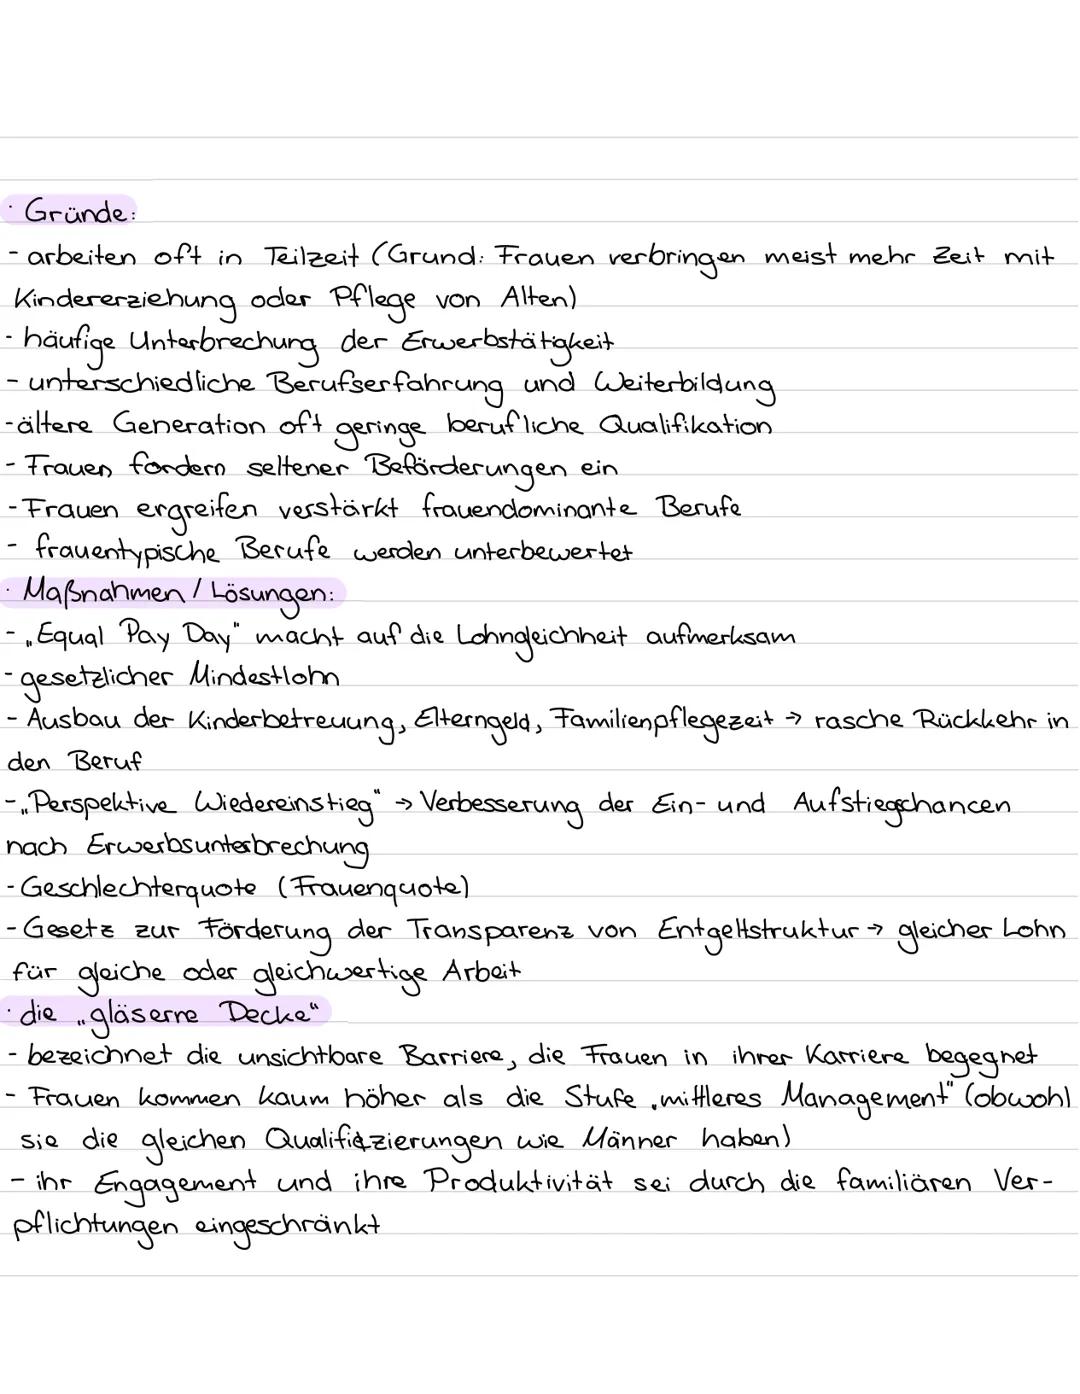 · Gründe:
- arbeiten oft in Teilzeit (Grund: Frauen verbringen meist mehr Zeit mit
Kindererziehung oder Pflege von Alten)
- häufige Unterbrechung der Erwerbstätigkeit
- unterschiedliche Berufserfahrung und Weiterbildung
- ältere Generation oft geringe berufliche Qualifikation
- Frauen fordern seltener Beförderungen ein
- Frauen ergreifen verstärkt frauendominante Berufe
- frauentypische Berufe werden unterbewertet
· Maßnahmen / Lösungen:
- „Equal Pay Day" macht auf die Lohngleichheit aufmerksam
- gesetzlicher Mindestlohn
- Ausbau der Kinderbetreuung, Elterngeld, Familienpflegezeit → rasche Rückkehr in
den Beruf
- „Perspektive Wiedereinstieg" → Verbesserung der Ein- und Aufstiegschancen
nach Erwerbsunterbrechung
- Geschlechterquote (Frauenquote)
- Gesetz zur Förderung der Transparenz von Entgeltstruktur → gleicher Lohn
für gleiche oder gleichwertige Arbeit
· die „gläserne Decke"
- bezeichnet die unsichtbare Barriere, die Frauen in ihrer Karriere begegnet
- Frauen kommen kaum höher als die Stufe „mittleres Management" (obwohl
sie die gleichen Qualifizierungen wie Männer haben)
- ihr Engagement und ihre Produktivität sei durch die familiären Ver-
pflichtungen eingeschränkt